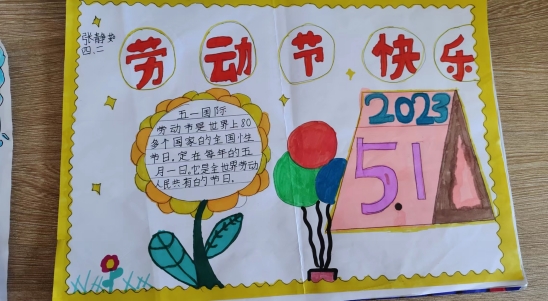 张静
四.二
劳动节快乐
五一国际
劳动节是世界上80
多个国家的全国性
节日。定在每年的五
月一日。它是全世界劳动
人民共有的节日.
2023
5.1